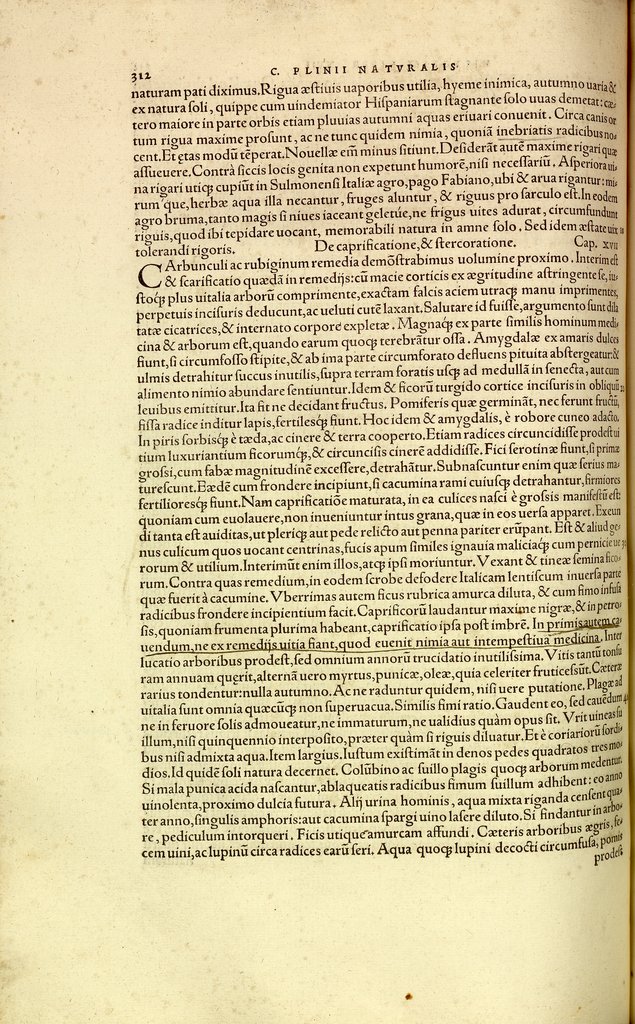 312
C. PLINII NATVRALIS
naturam pati diximus.Rigua æſtiuis uaporibus utilia, hyeme inimica, autumno uaria &
ex natura ſoli, quippe cum uindemiator Hiſpaniarum ſtagnante ſolo uuas demetat: cæ-
tero maiore in parte orbis etiam pluuias autumni aquas eriuari conuenit. Circa canis or
tum rigua maxime proſunt, ac ne tunc quidem nimia, quoniã inebriatis radicibus no-
cent. Et ętas modũ tẽperat. Nouellæ eĩm minus ſitiunt. Deſiderãt autẽ maxime rigari quæ
aſſueuere. Contrà ſiccis locis genita non expetunt humorẽ, niſi neceſſariũ. Aſperiora ui-
na rigari utiq; cupiũt in Sulmonenſi Italiæ agro, pago Fabiano, ubi & arua rigantur: mi-
rum´que, herbæ aqua illa necantur, fruges aluntur, & riguus pro ſarculo eſt. In eodem
agro bruma, tanto magis ſi niues iaceant gelétúe, ne frigus uites adurat, circumfundunt
riguis, quod ibi tepidare uocant, memorabili natura in amne ſolo. Sed idem æſtate uix
tolerandi rigoris. De caprificatione, & ſtercoratione. Cap. xvii
CArbunculi ac rubiginum remedia demõſtrabimus uolumine proximo. Interim eſt
& ſcarificatio quædã in remedijs: cũ macie corticis ex ægritudine aſtringente ſe, iu-
ſtoq; plus uitalia arborũ comprimente, exactam falcis aciem utraq; manu imprimentes,
perpetuis inciſuris deducunt, ac ueluti cutẽ laxant. Salutare id fuiſſe, argumento ſunt dila
tatæ cicatrices, & internato corpore expletæ. Magnaq; ex parte ſimilis hominum medi-
cina & arborum eſt, quando earum quoq; terebrãtur oſſa. Amygdalæ ex amaris dulces
fiunt, ſi circumfoſſo ſtipite, & ab ima parte circumforato defluens pituita abſtergeatur: &
ulmis detrahitur ſuccus inutilis, ſupra terram foratis uſq; ad medullã in ſenecta, aut cum
alimento nimio abundare ſentiuntur. Idem & ficorũ turgido cortice inciſuris in obliquũ
leuibus emittitur. Ita fit ne decidant fructus. Pomiferis quæ germinãt, nec ferunt fructũ,
fiſſa radice inditur lapis, fertilesq; fiunt. Hoc idem & amygdalis, è robore cuneo adacto.
In piris ſorbisq; è tæda, ac cinere & terra cooperto. Etiam radices circuncidiſſe prodeſt ui
tium luxuriantium ficorumq;, & circunciſis cinerẽ addidiſſe. Fici ſerotinæ fiunt, ſi primæ
groſsi, cum fabæ magnitudinẽ exceſſere, detrahãtur. Subnaſcuntur enim quæ ſerius ma-
tureſcunt. Eædẽ cum frondere incipiunt, ſi cacumina rami cuiuſq; detrahantur, firmiores
fertilioresq; fiunt. Nam caprificatiõe maturata, in ea culices naſci è groſsis manifeſtũ eſt:
quoniam cum euolauere, non inueniuntur intus grana, quæ in eos uerſa apparet. Exeun
di tanta eſt auiditas, ut pleriq; aut pede relicto aut penna pariter erũpant. Eſt & aliud ge-
nus culicum quos uocant centrinas, fucis apum ſimiles ignauia maliciaq; cum pernicie ue
rorum & utilium. Interimũt enim illos, atq; ipſi moriuntur. Vexant & tineæ ſemina fico-
rum. Contra quas remedium, in eodem ſcrobe defodere Italicam lentiſcum inuerſa parte
quæ fuerit à cacumine. Vberrimas autem ficus rubrica amurca diluta, & cum fimo infuſa
radicibus frondere incipientium facit. Caprificorũ laudantur maxime nigræ, & in petro-
ſis, quoniam frumenta plurima habeant, caprificatio ipſa poſt imbrẽ. In primis autem ca
uendum, ne ex remedijs uitia fiant, quod euenit nimia aut intempeſtiua medicina. Inter
lucatio arboribus prodeſt, ſed omnium annorũ trucidatio inutiliſsima. Vitis tantũ tonſu
ram annuam quęrit, alternã uero myrtus, punicæ, oleæ, quia celeriter fruticeſcũt. Cæteræ
rarius tondentur: nulla autumno. Ac ne raduntur quidem, niſi uere putatione. Plagæ ad
uitalia ſunt omnia quæcũq; non ſuperuacua. Similis fimi ratio. Gaudent eo, ſed cauẽdum
ne in feruore ſolis admoueatur, ne immaturum, ne ualidius quàm opus ſit. Vrit uineas ſu
illum, niſi quinquennio interpoſito, præter quàm ſi riguis diluatur. Et è coriariorũ ſordi-
bus niſi admixta aqua. Item largius. Iuſtum exiſtimãt in denos pedes quadratos tres mo-
dios. Id quidẽ ſoli natura decernet. Colũbino ac ſuillo plagis quoq; arborum medentur.
Si mala punica acida naſcantur, ablaqueatis radicibus fimum ſuillum adhibent: eo anno
uinolenta, proximo dulcia futura. Alij urina hominis, aqua mixta riganda cenſent qua-
ter anno, ſingulis amphoris: aut cacumina ſpargi uino laſere diluto. Si findantur in arbo-
re, pediculum intorqueri. Ficis utique amurcam affundi. Cæteris arboribus ægris, fe-
cem uini, ac lupinũ circa radices earũ ſeri. Aqua quoq; lupini decocti circumfuſa, pomis
prodeſt.